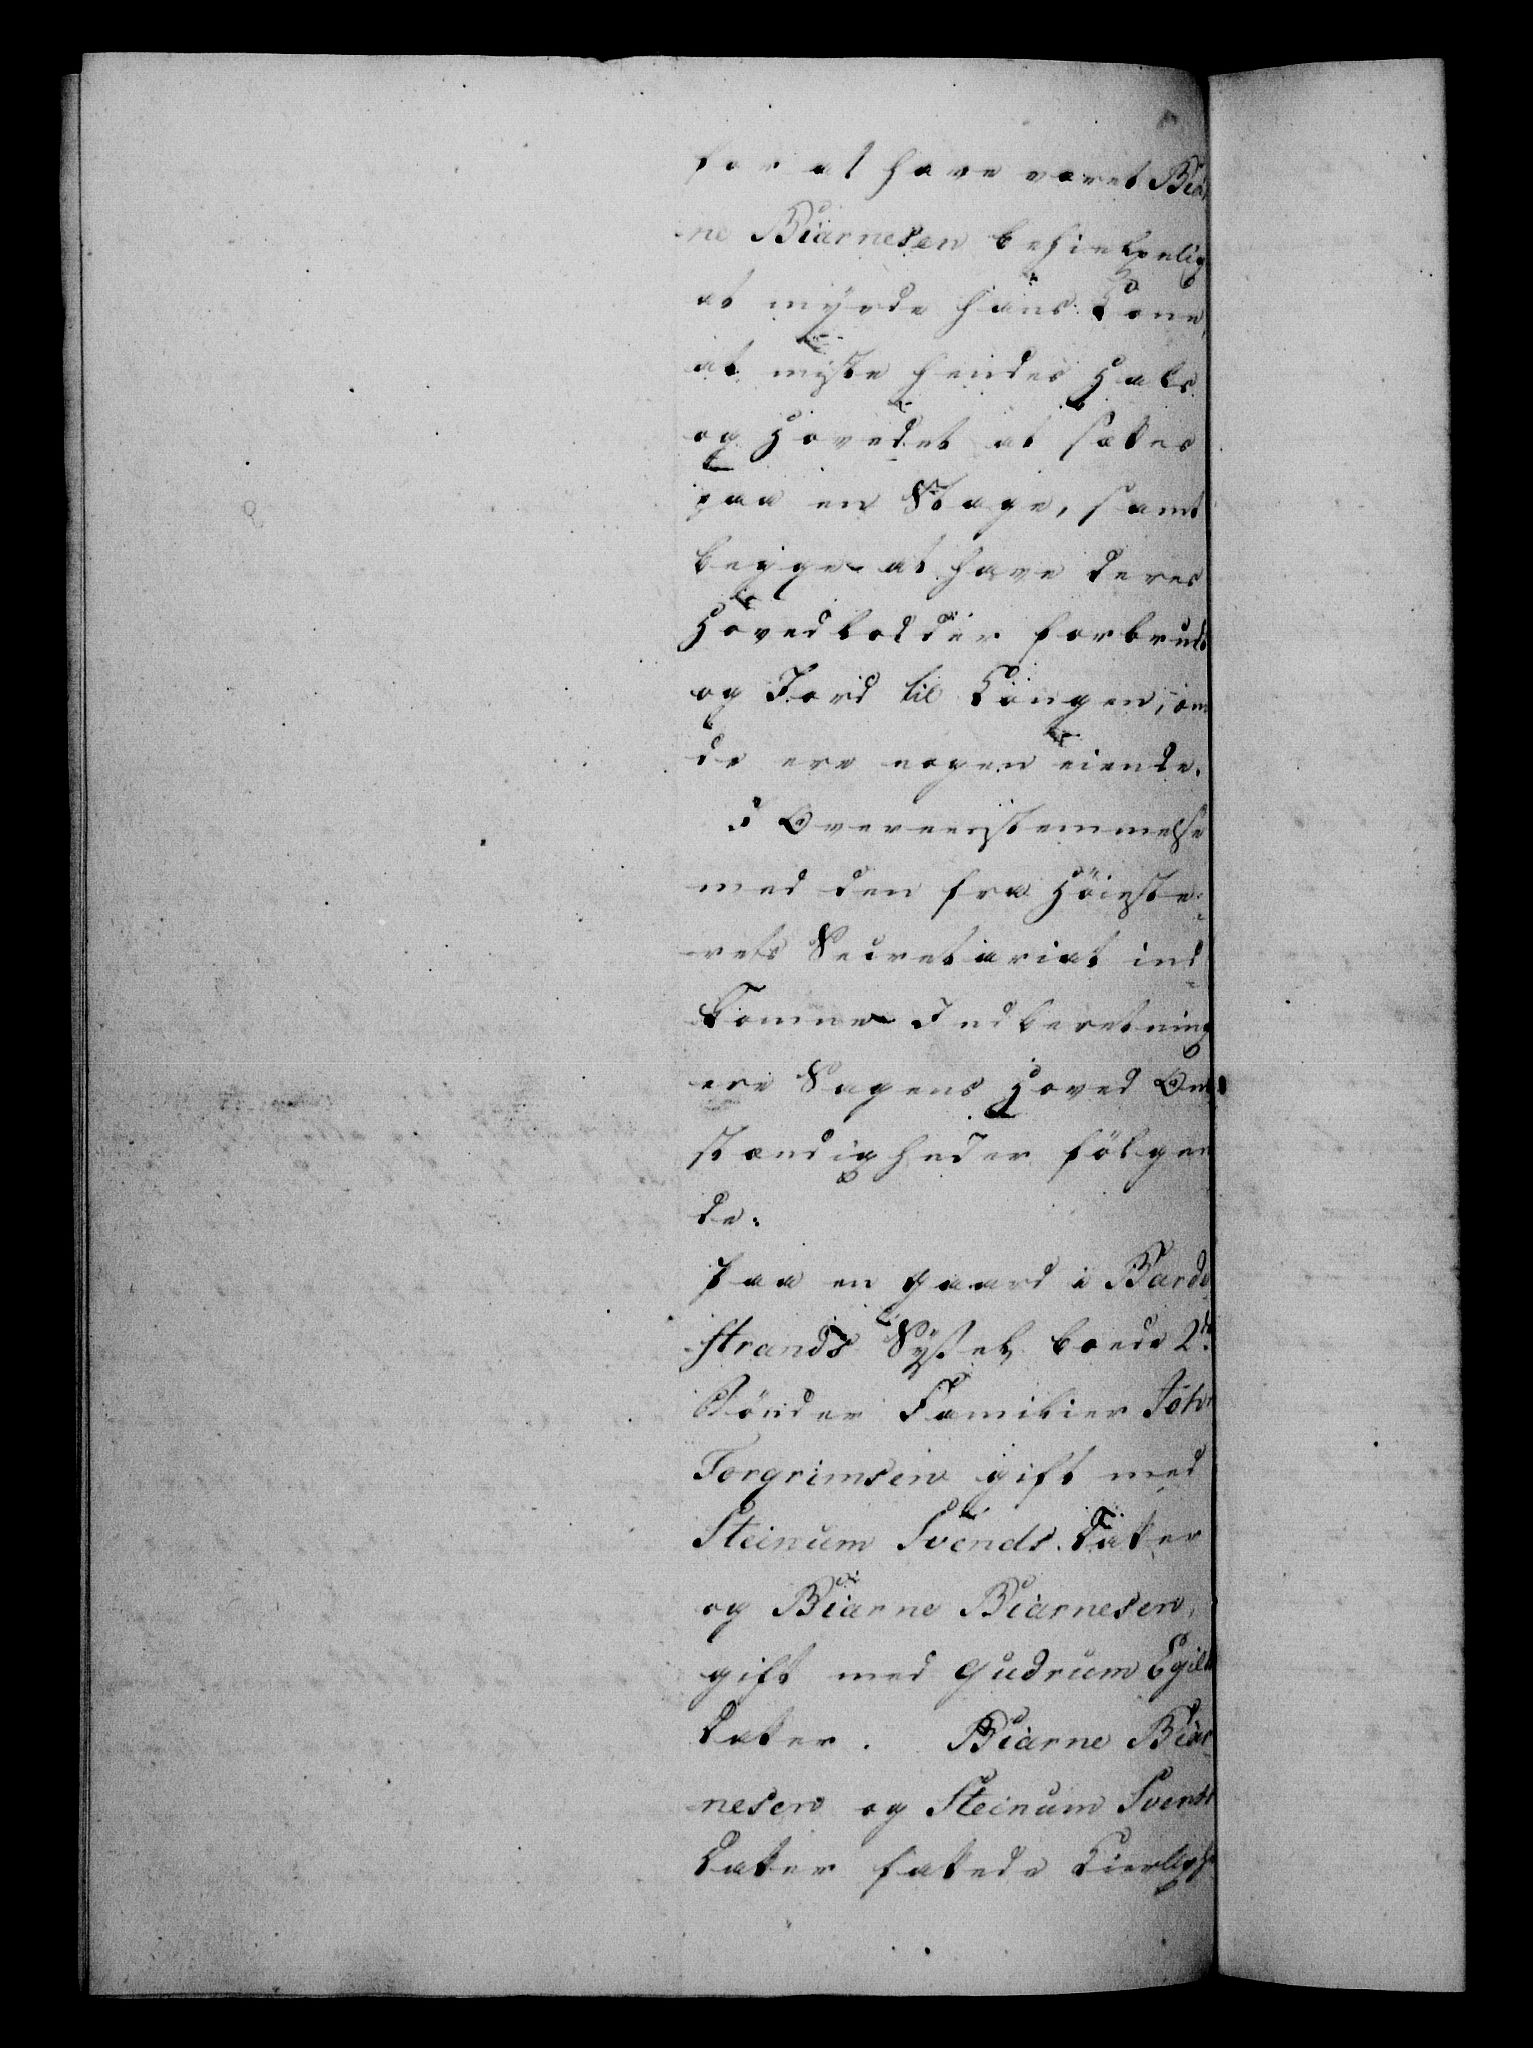 for at have været Biar
ne Biarnesen behielpelig
at myrde hans Kone,
at miste hendes Hals
og Hovedet at sættes
paa en Stage, samt
begge at have deres
Hovedlodder forbrudt
og Jord til Kongen, om
de ere nogen eiende.
I Overeenstemmelse
med den fra Höieste-
rets Secretariat ind-
komne Indberetning
ere Sagens Hoved Om-
stændigheder fölgen
de:
Paa en Gaard i Barde
strands Syssel boede 2de
Bönder Familier John
Torgrimsen gift med
Steinum Svends Datter
og Biarne Biarnesen,
gift med Gudrum Egils
datter. Biarne Biar
nesen og Steinum Svends
datter fattede Kierligh